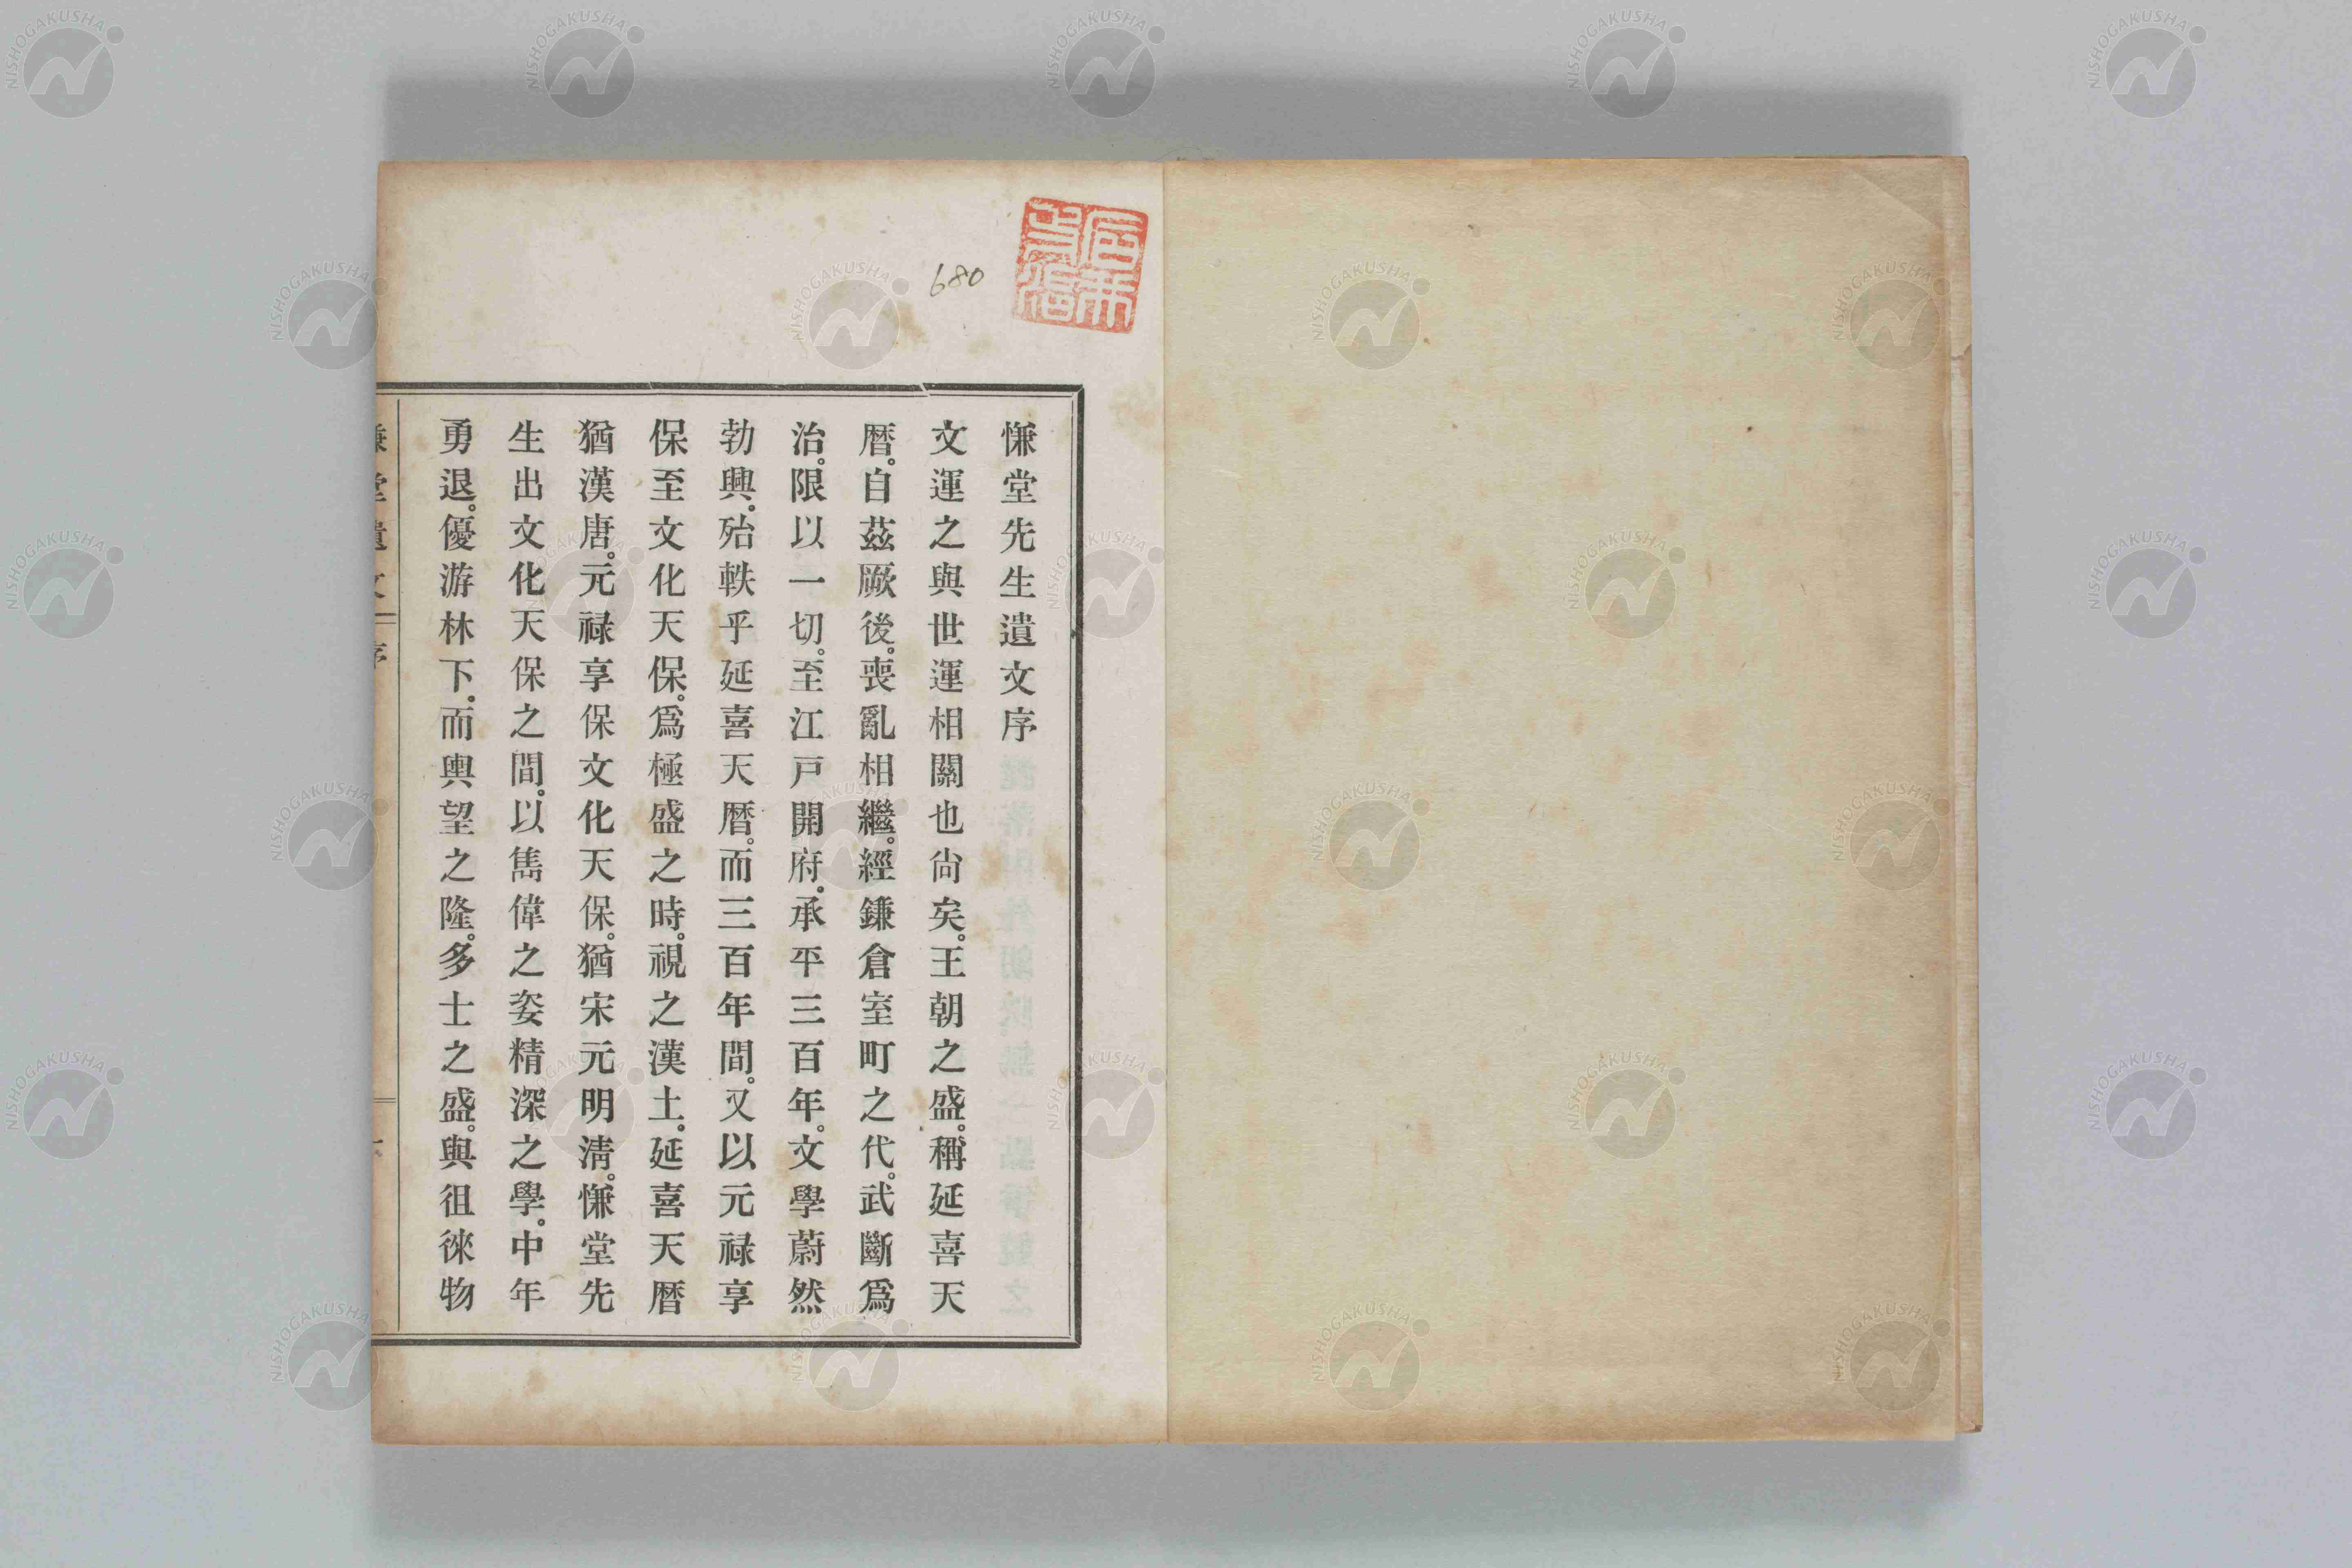 680
慊堂先生遺文序
文運之與世運相關也尙矣。王朝之盛。稱延喜天
曆。自茲厥後。喪亂相繼。經鎌倉室町之代。武斷爲
治。限以一切。至江戸開府。承平三百年。文學蔚然
勃興。殆軼乎延喜天曆。而三百年間。又以元祿享
保至文化天保。爲極盛之時。視之漢土。延喜天曆
猶漢唐。元祿享保文化天保。猶宋元明淸。慊堂先
生出文化天保之間。以雋偉之姿精深之學。中年
勇退。優游林下。而輿望之隆。多士之盛。與徂徠物
慊堂遺文 序
NISHOGAKUSHA